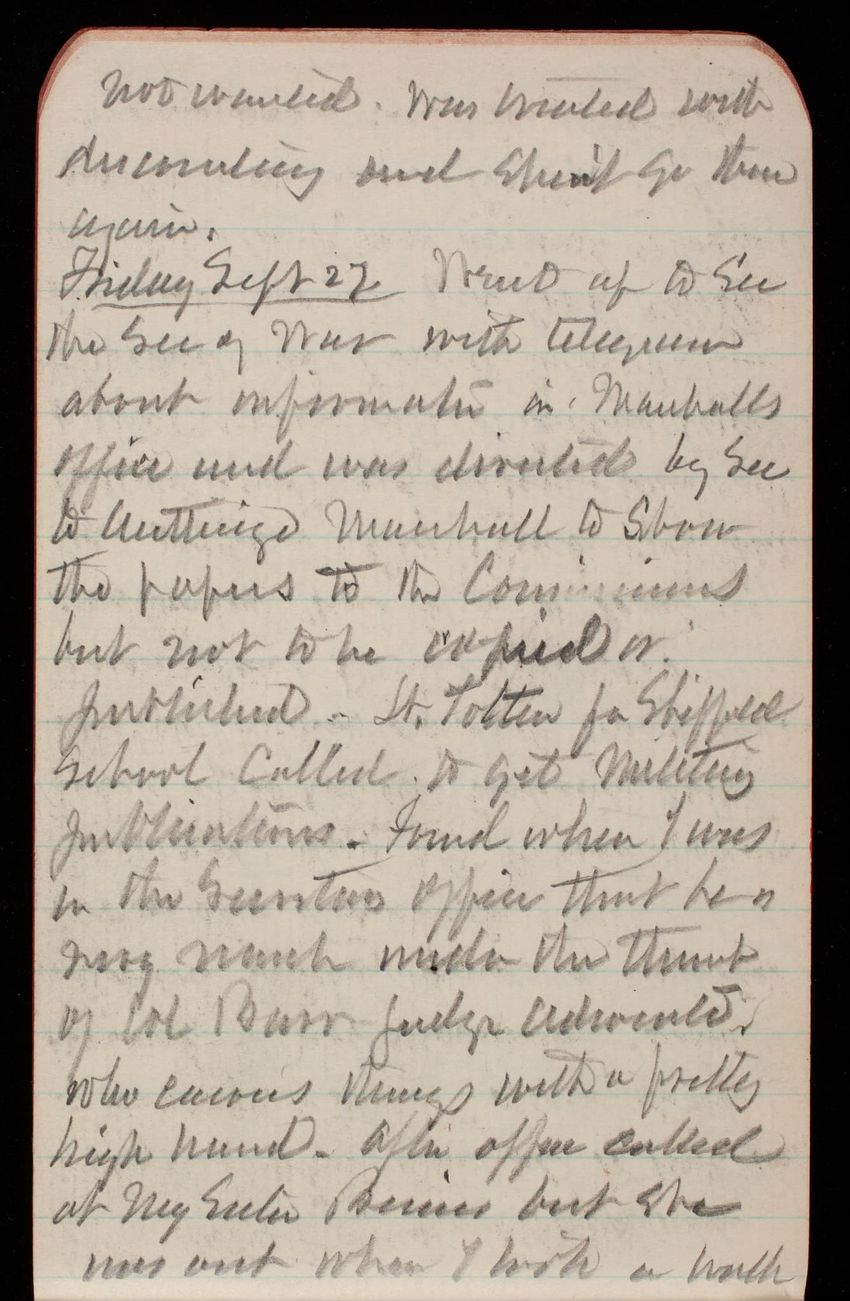 not wanted. Was treated with
discourtesy and shan't go there
again.
Friday Sept 27 Went up to See
the Sec of War with telegram
about information in Marshalls
office and was directed by Sec
to authorize Marshall to Show
the papers to the
but not to be copied or
published - Lt. Totten fr Sheffield
School Called to get Military
publications. Found when I was
in the Secretarys office that he is
very much under the
of Col Barr Judge Advocate.
who carries things with a pretty
high hand - After office called
at but she
was out when I took a walk